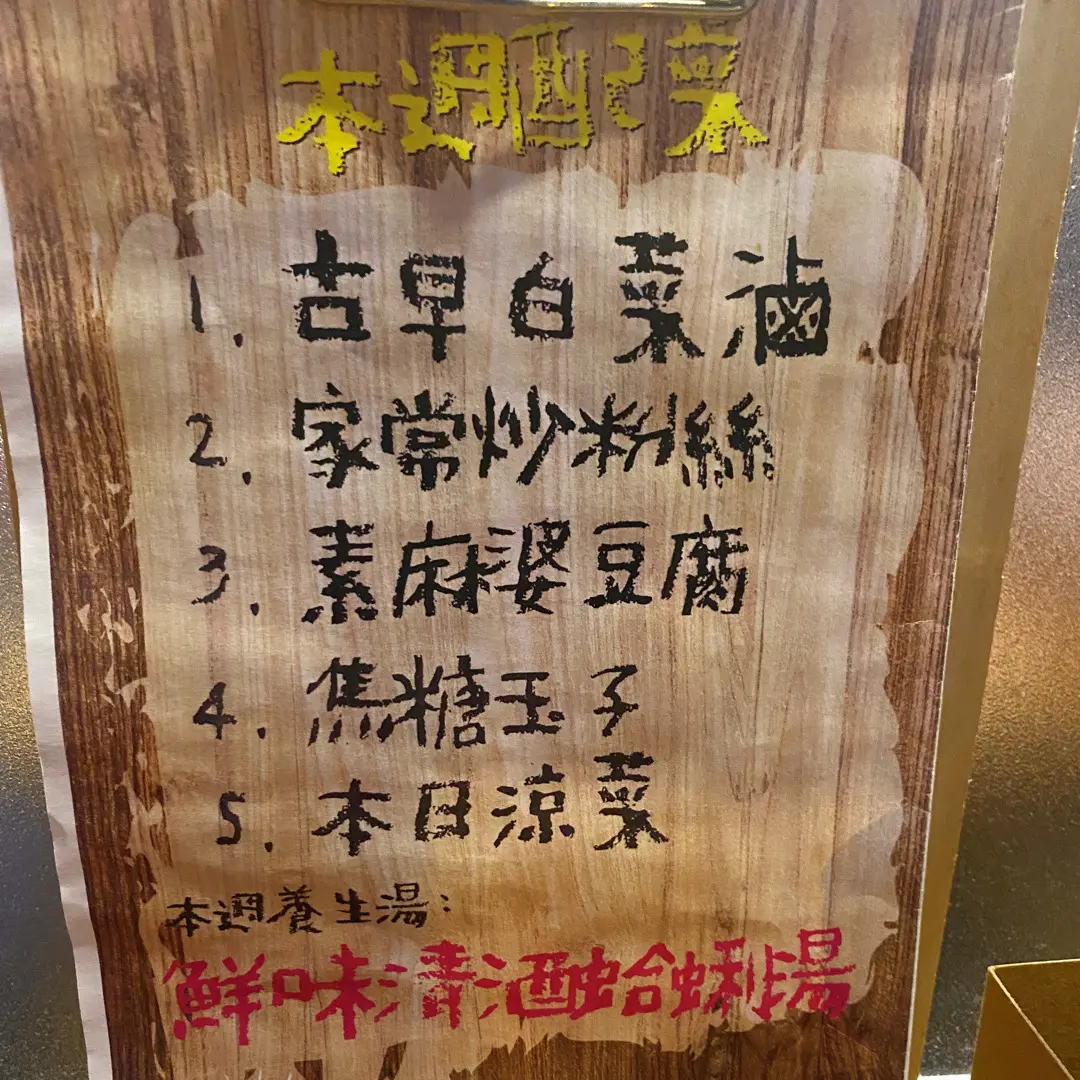 本週配菜
1. 古早白菜滷
2. 家常炒粉絲
3. 素麻婆豆腐
4. 焦糖玉子
5. 本日涼菜
本週養生湯:
鮮味清酒蛤蜊湯